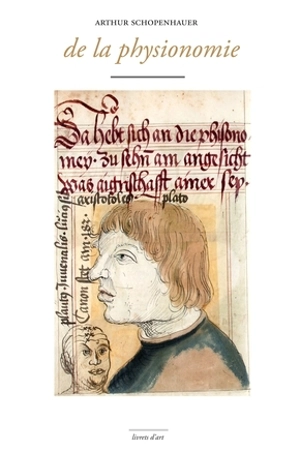 ARTHUR SCHOPENHAUER
de la physionomie
Da hebt sich an die phisono
mey · zu sehn am angesicht
was aignschafft ainer sey ·
aristotoles · plato
plautus Juuenalis
Canon
livrets d'art